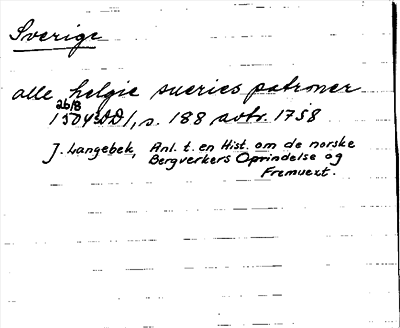 Sverige
alle helgie sueries patroner
26/8
1504 DD1, s. 188 avtr. 1758
J. Langebek, Anl. t. en Hist. om de norske
Bergverkers Oprindelse og
Fremvext.